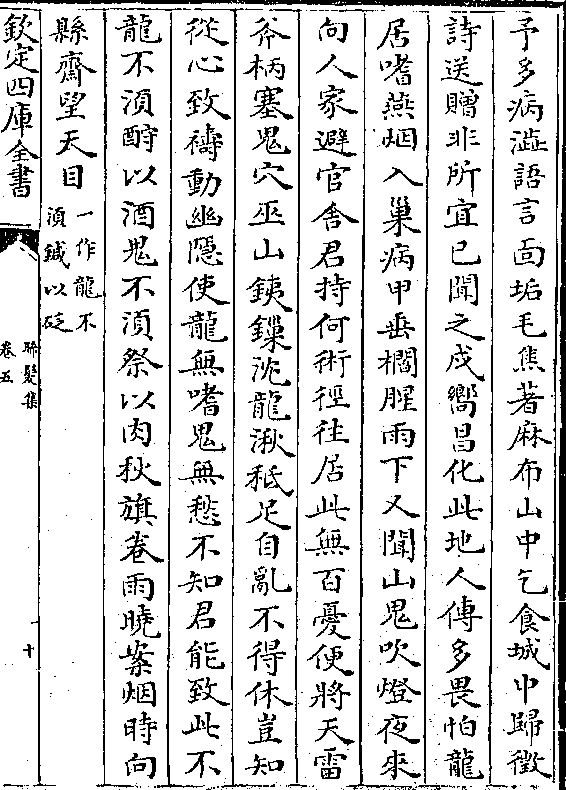 予多病澁語言面垢毛焦著麻布山中乞食城中歸徵
詩送贈非所宜已聞之戍嚮昌化此地人傳多畏怕龍
居嗜燕烟入巢病甲垂欄腥雨下又聞山鬼吹燈夜來
向人家避官舍君持何術徑往居此無百憂便將天雷
斧柄塞鬼穴巫山銕鏁沈龍湫秪足自亂不得休豈知
從心致禱動幽隱使龍無嗜鬼無愁不知君能致此不
龍不湏酧以酒鬼不湏祭以肉秋旗卷雨曉案烟時向
縣齋望天目
一作龍不
湏鍼以砭
欽定四庫全書
晞髮集
卷五
十